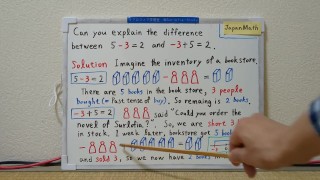 JapanMath
Can you explain the difference
between 5-3=2 and -3+5=2.
Solution Imagine the inventory of a bookstore.
5-3=2
There are 5 books in the book store, 3 people
bought (= Past tense of buy), So remaing is 2 books.
-3+5=2 said "Could you order the
novel of ?" So, we are short 3
in stock. 1 week later, bookstore got 5
and sold 3, So we now have 2 books in